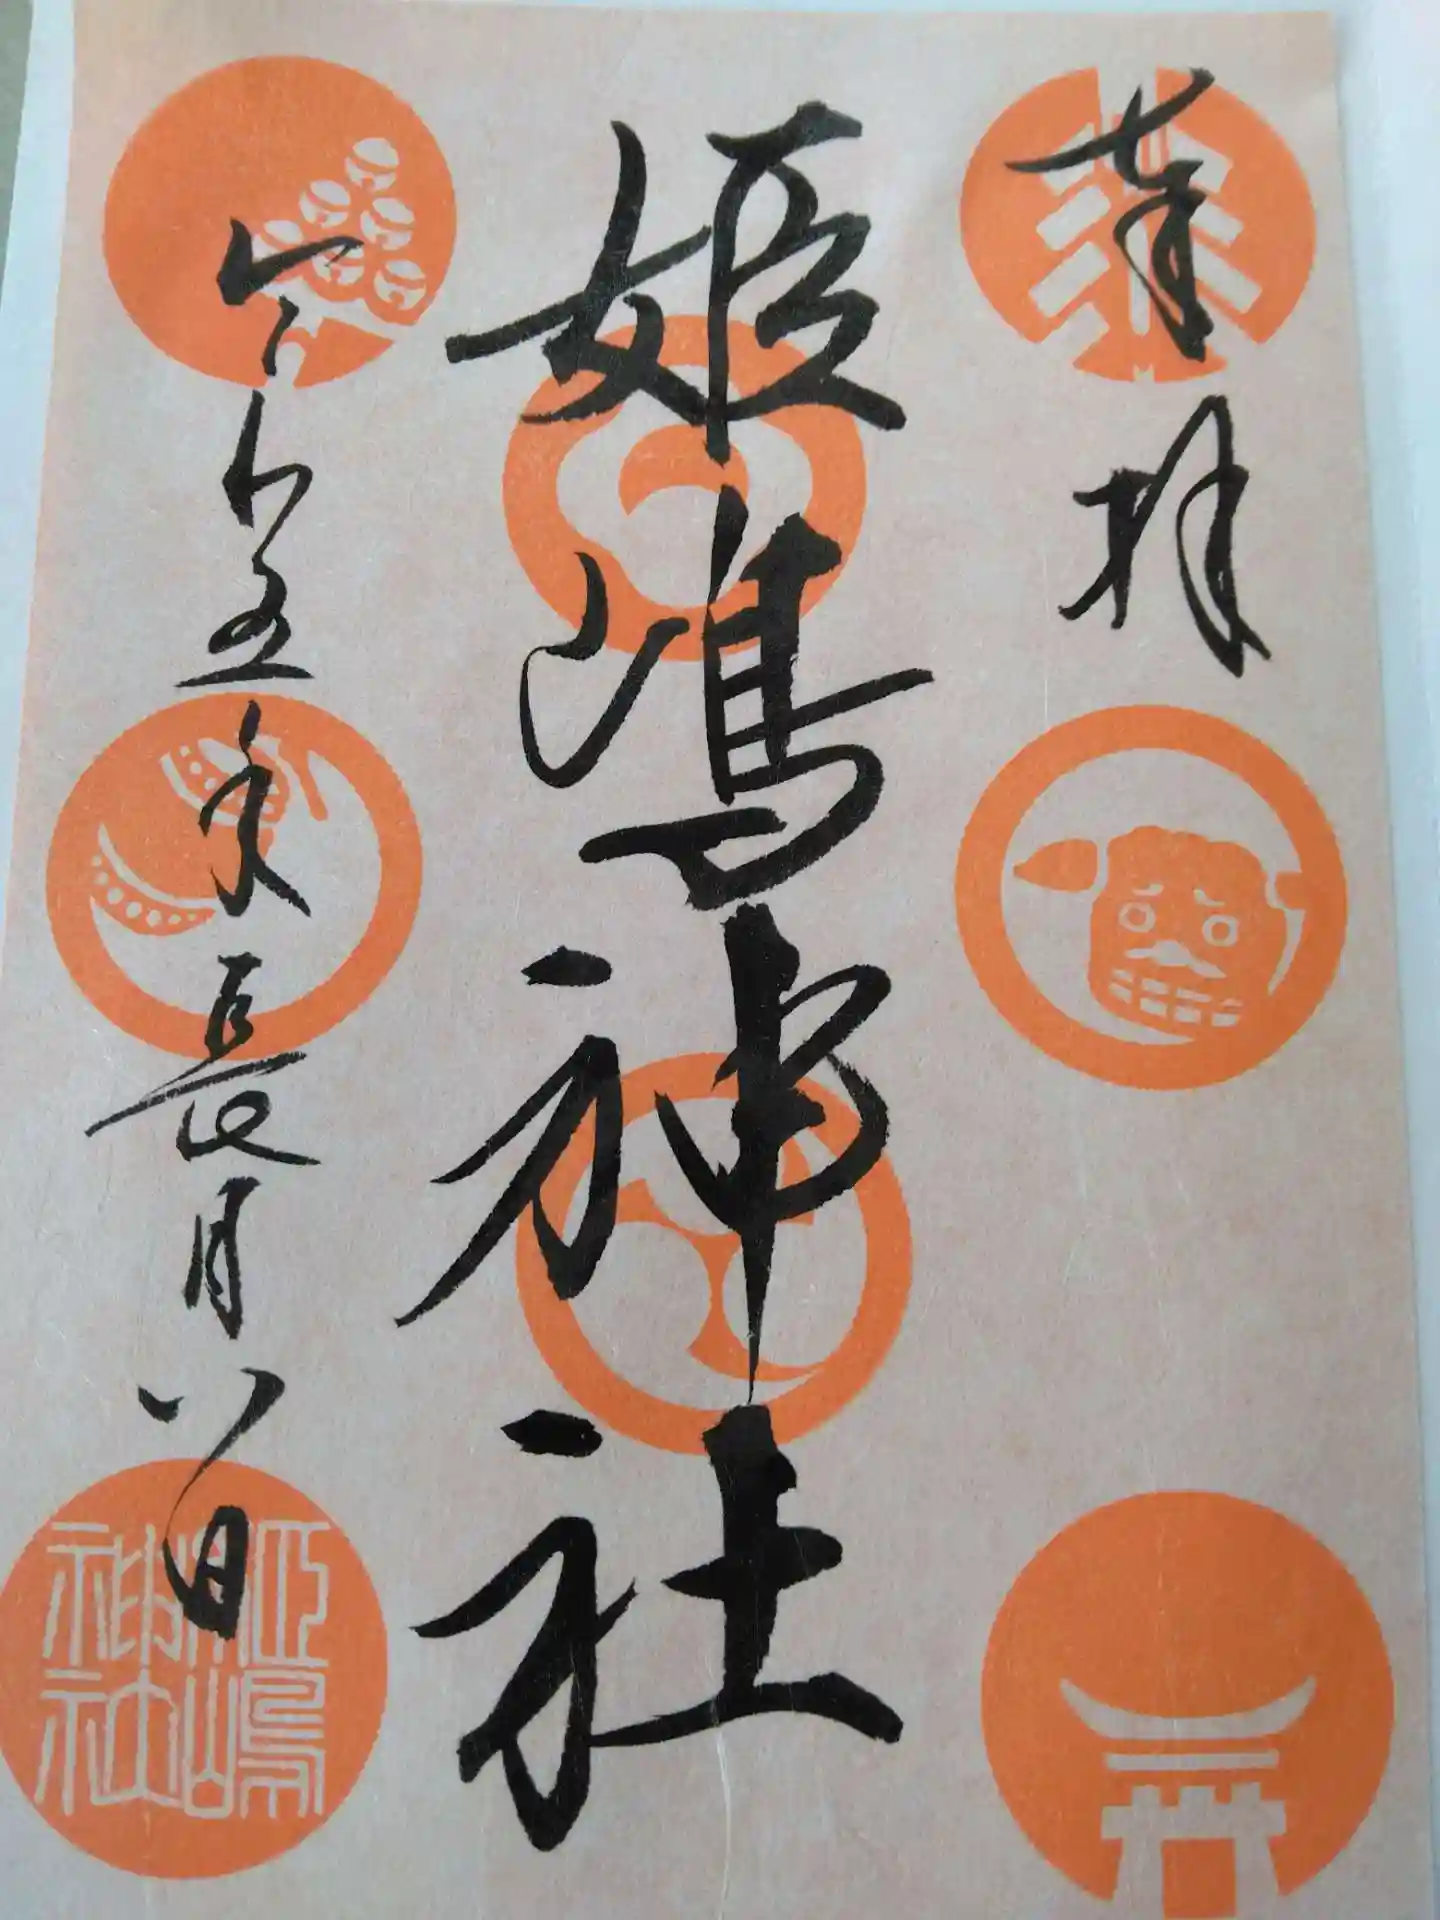 奉拝
姫嶋神社
令和五年長月八日
姫嶋
神社